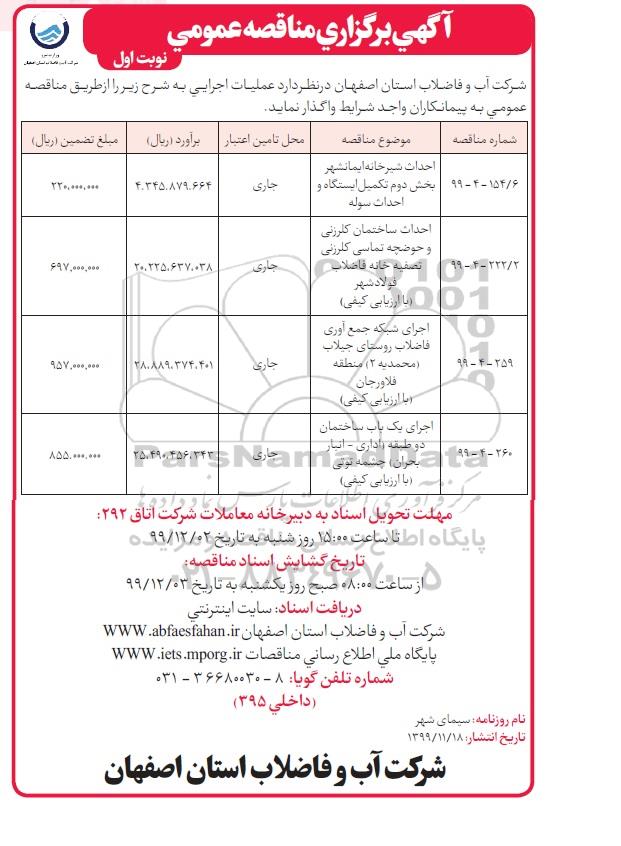 آگهي برگزاري مناقصه عمومي
نوبت اول
شركت آب و فاضلاب استان اصفهان
شركت آب و فاضلاب استان اصفهان درنظر دارد عمليات اجرايي به شرح زير را ازطريق مناقصه
عمومي به پيمانكاران واجد شرايط واگذار نمايد.
شماره مناقصه | موضوع مناقصه | محل تامين اعتبار | برآورد (ريال) | مبلغ تضمين (ريال)
۹۹-۴-۱۵۴/۶ | احداث شيرخانه ايمانشهر بخش دوم تكميل ايستگاه و احداث سوله | جاري | ۴.۳۴۵.۸۷۹.۶۶۴ | ۲۲۰.۰۰۰.۰۰۰
۹۹-۴-۲۲۲/۲ | احداث ساختمان كلرزني و حوضچه تماسي كلرزني تصفيه خانه فاضلاب فولادشهر (با ارزيابي كيفي) | جاري | ۲۰.۲۲۵.۶۳۷.۰۳۸ | ۶۹۷.۰۰۰.۰۰۰
۹۹-۴-۲۵۹ | اجراي شبكه جمع آوري فاضلاب روستاي جيلاب (محمديه ۲) منطقه فلاورجان (با ارزيابي كيفي) | جاري | ۲۸.۸۸۹.۳۷۴.۴۰۱ | ۹۵۷.۰۰۰.۰۰۰
۹۹-۴-۲۶۰ | اجراي يک باب ساختمان دو طبقه (اداري - انبار بحران) چشمه توتي (با ارزيابي كيفي) | جاري | ۲۵.۴۹۰.۴۵۶.۳۴۳ | ۸۵۵.۰۰۰.۰۰۰
ParsNamadData
مهلت تحويل اسناد به دبيرخانه معاملات شركت اتاق ۲۹۲:
تا ساعت ۱۵:۰۰ روز شنبه به تاريخ ۹۹/۱۲/۰۲
تاريخ گشايش اسناد مناقصه:
از ساعت ۰۸:۰۰ صبح روز يكشنبه به تاريخ ۹۹/۱۲/۰۳
دريافت اسناد: سايت اينترنتي
شركت آب و فاضلاب استان اصفهان WWW.abfaesfahan.ir
پايگاه ملي اطلاع رساني مناقصات WWW.iets.mporg.ir
شماره تلفن گويا: ۸ - ۳۶۶۸۰۰۳۰ - ۰۳۱
(داخلي ۳۹۵)
نام روزنامه: سيماي شهر
تاريخ انتشار: ۱۳۹۹/۱۱/۱۸
شركت آب و فاضلاب استان اصفهان